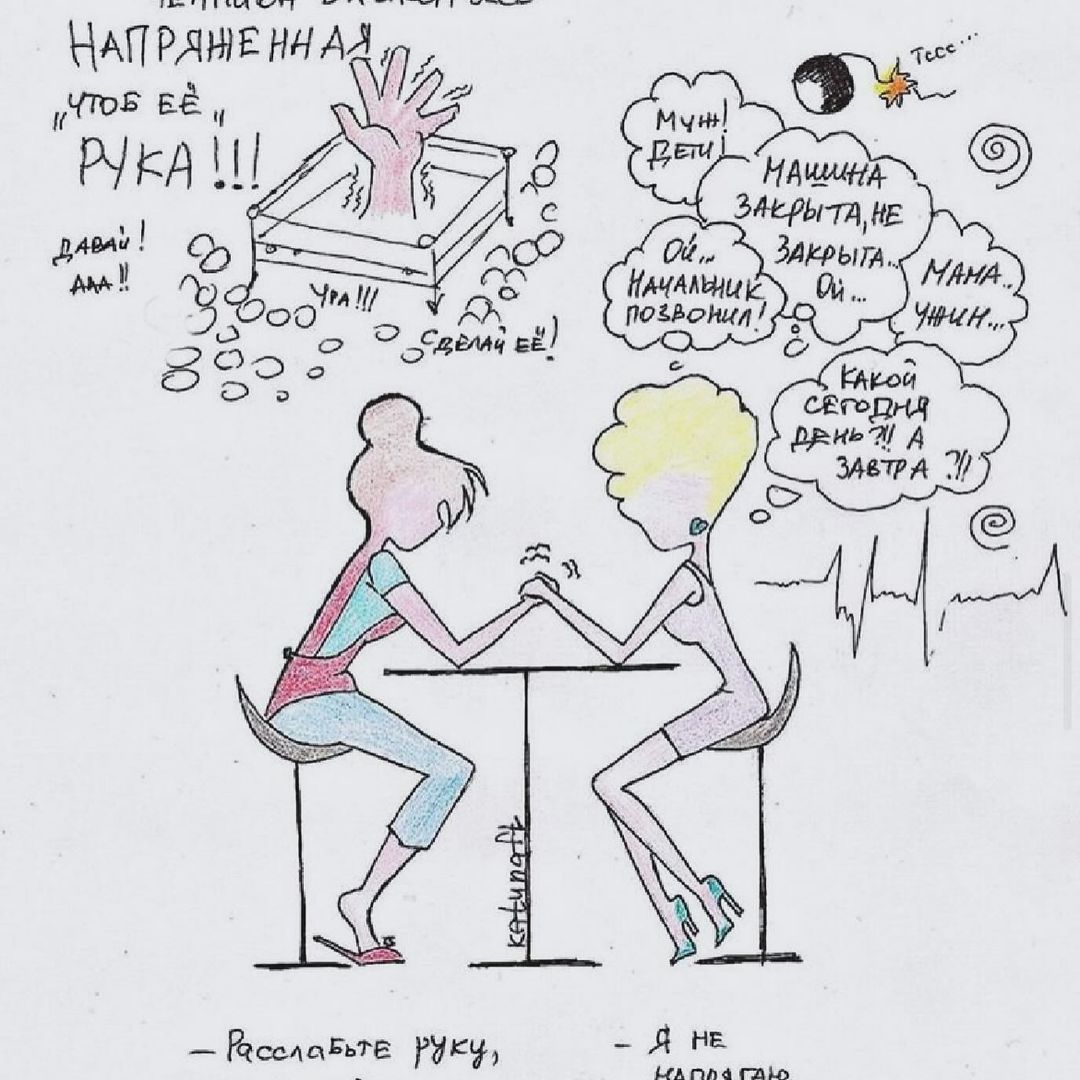 НАПРЯЖЕННАЯ
„ЧТОБ ЕЁ"
РУКА!!!
ДАВАЙ!
ААА!!
УРА!!!
СДЕЛАЙ ЕЁ!
Тссс...
МУЖ!
ДЕТИ!
МАШИНА
ЗАКРЫТА, НЕ
ЗАКРЫТА..
ОЙ...
ОЙ...
НАЧАЛЬНИК
ПОЗВОНИЛ!
МАМА..
УЖИН...
КАКОЙ
СЕГОДНЯ
ДЕНЬ?!! А
ЗАВТРА?!!
katunaft
– Расслабьте руку,
– Я НЕ
НАПРЯГАЮ